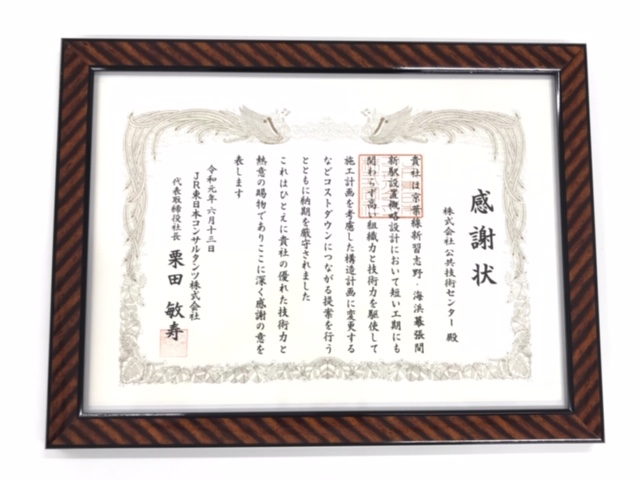 感謝状
株式会社公共技術センター 殿
貴社は京葉線新習志野・海浜幕張間
新駅設置概略設計において短い工期にも
関わらず高い組織力と技術力を駆使して
施工計画を考慮した構造計画に変更する
などコストダウンにつながる提案を行う
とともに納期を厳守されました
これはひとえに貴社の優れた技術力と
熱意の賜物でありここに深く感謝の意を
表します
令和元年六月十三日
JR東日本コンサルタンツ株式会社
代表取締役社長 栗田敏寿